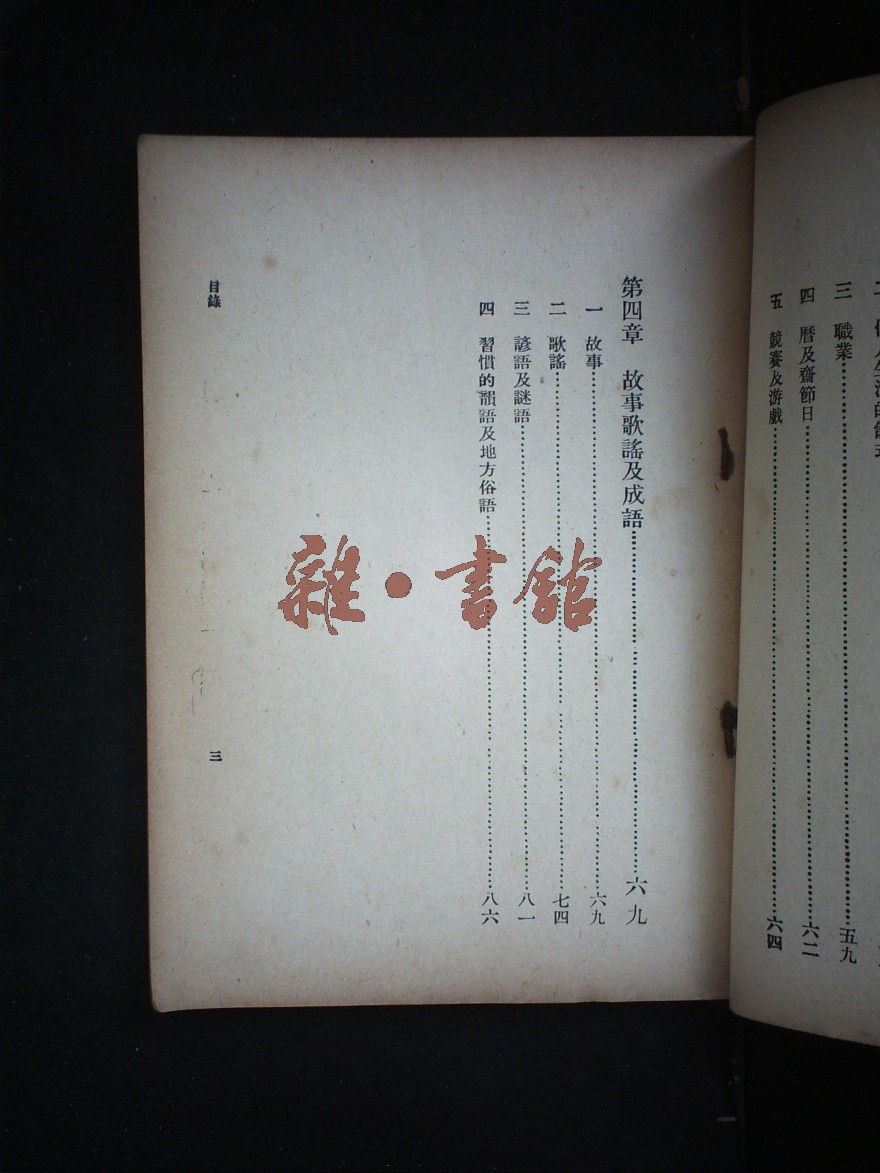 三　職業……五九
四　曆及齋節日……六二
五　競賽及游戲……六四
第四章　故事歌謠及成語……六九
一　故事……六九
二　歌謠……七四
三　諺語及謎語……八一
四　習慣的韻語及地方俗語……八六
目錄
三
雜・書館